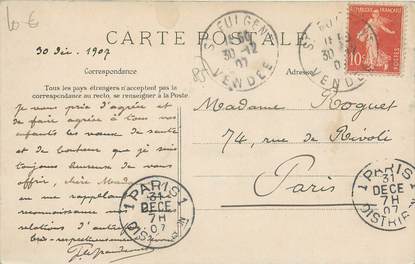 10 €
30 Déc. 1907
CARTE POSTALE
ST FULGENT
30 -12
07
VENDÉE
ST FULGENT
30 -12
07
VENDÉE
10
POSTES
Correspondance
Adresse
Tous les pays étrangers n'acceptent pas la
correspondance au recto, se renseigner à la Poste.
Je vous prie d'agréer et
de faire agréer à tous vos
enfants les vœux de santé
et de bonheur que je suis
toujours heureuse de vous
offrir, chère
en me rappelant
reconnaissance
relations d'autrefois
très respectueusement
Madame Roguet
74, rue de Rivoli
Paris
1 PARIS 1
31
DECE
7H
07
DISTRIB
1 PARIS 1
31
DECE
7H
07
DISTRIB